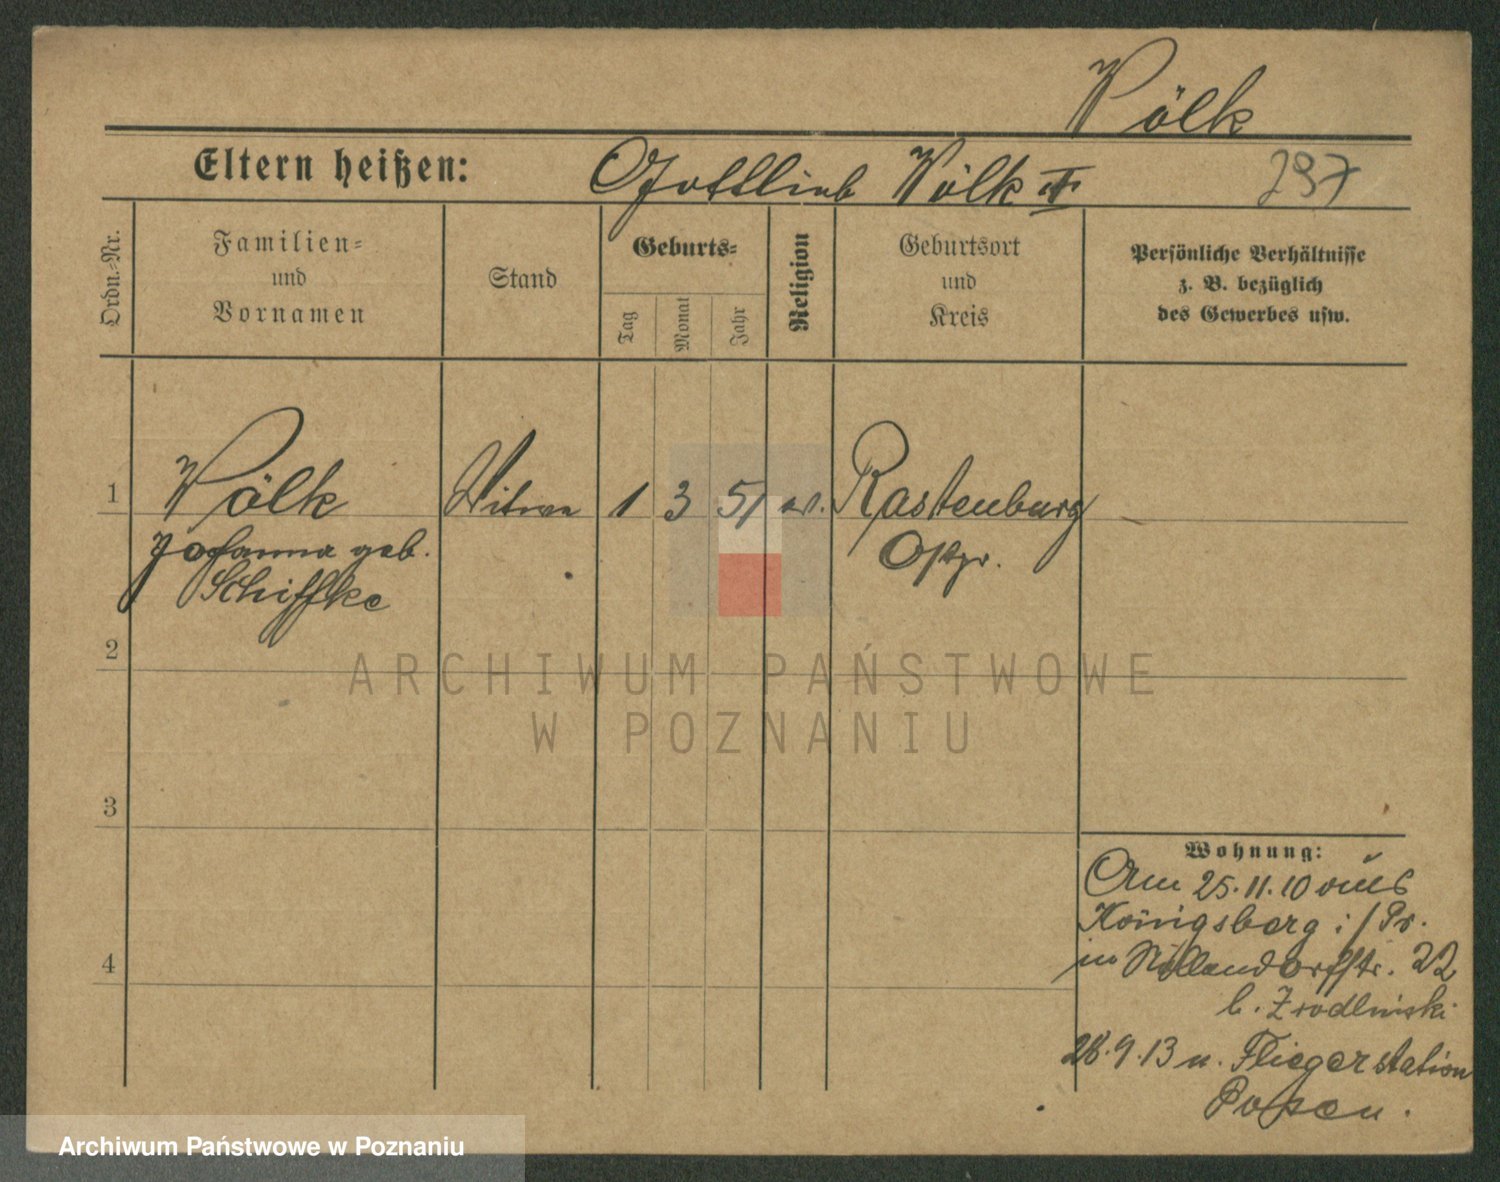 Völk
Eltern heißen: Gottlieb Völk † 297
Ordn.-Nr.
Familien-
und
Vornamen
Stand
Geburts-
Tag
Monat
Jahr
Religion
Geburtsort
und
Kreis
Persönliche Verhältnisse
z. B. bezüglich
des Gewerbes usw.
1 Völk Witwe 1 3 51 ev. Rastenburg
Johanna geb. Ospr.
Schiffke
2
3
4
Wohnung:
Am 25.11.10 aus
Königsberg i/Pr.
in Nollendorffstr. 22
b. Zrodlinski
28.9.13 n. Fliegerstation
Posen.
ARCHIWUM PAŃSTWOWE
W POZNANIU
Archiwum Państwowe w Poznaniu